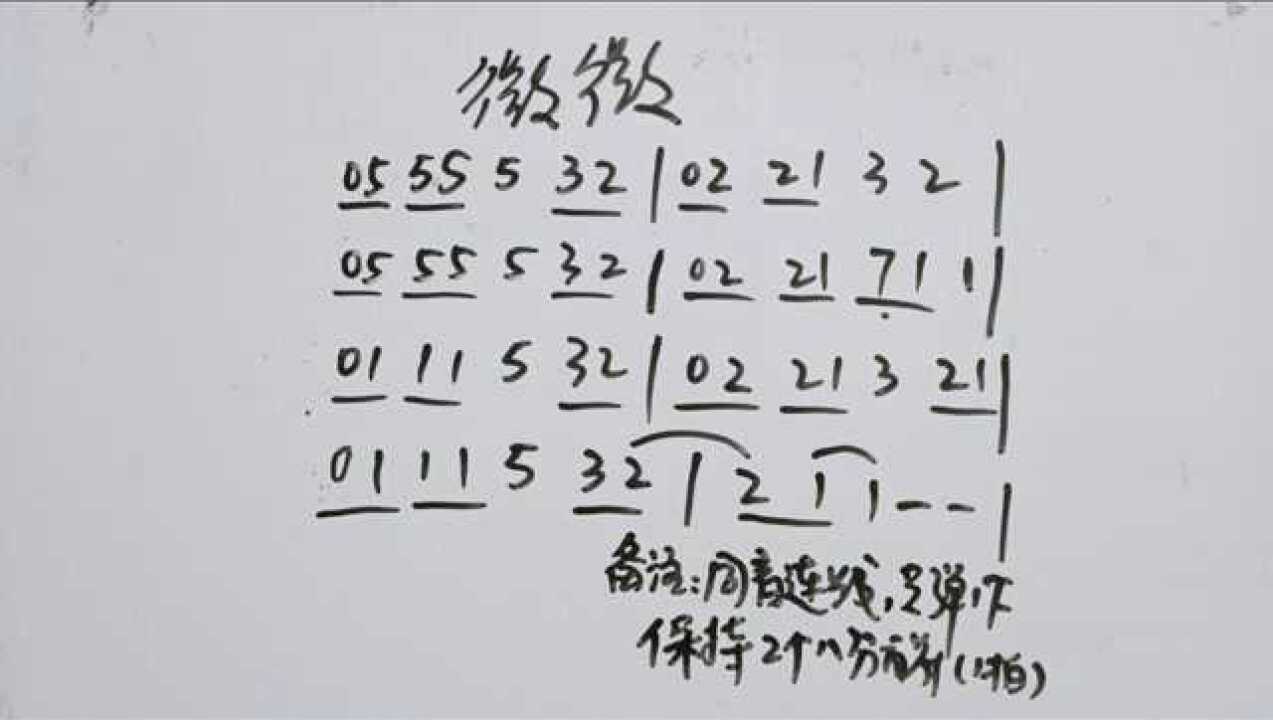 微微
05 55 5 32 | 02 21 3 2 |
05 55 5 32 | 02 21 7̣1 1 |
01 11 5 32 | 02 21 3 21 |
01 11 5 32 | 2 1 1 - - |
备注:同音连线,只弹1下
保持2个八分音符(1拍)